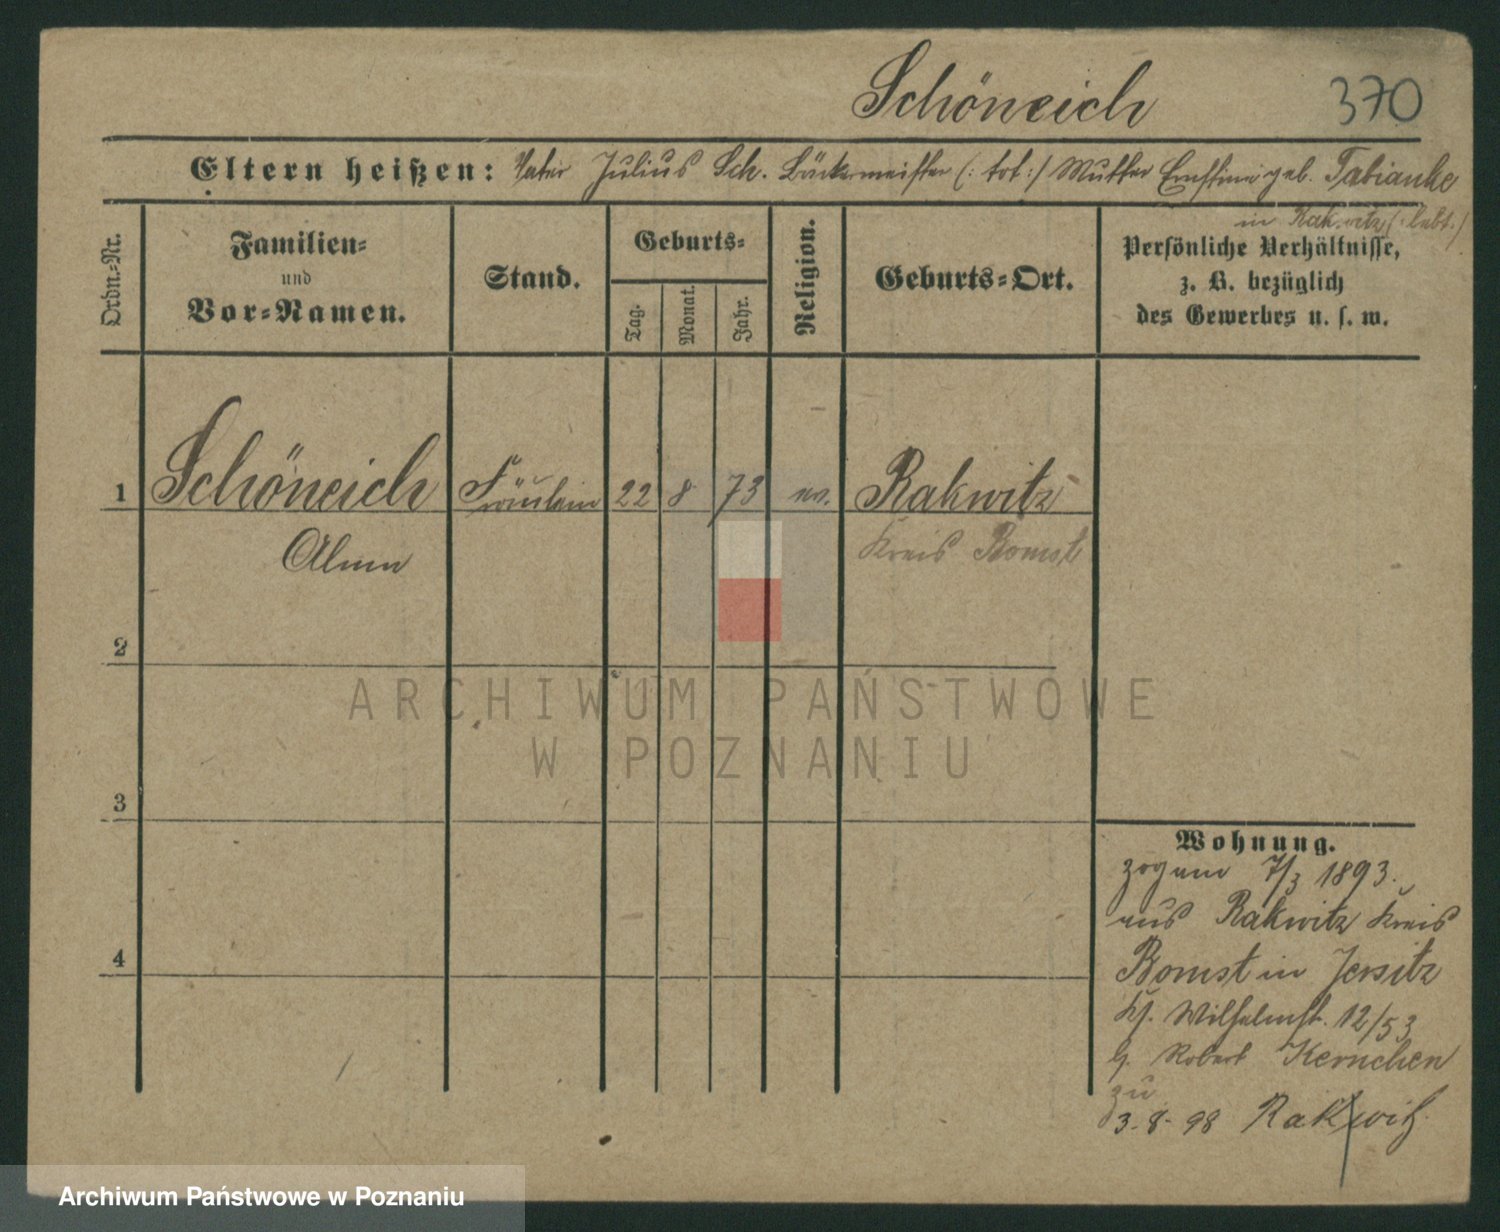 Schöneich 370
Eltern heißen: Vater Julius Sch. Bäckermeister (: tot :) Mutter Ernstine geb. Fabianke
in Rakwitz (: lebt. :)
Ordn.-Nr.
Familien-
und
Vor-Namen.
Stand.
Geburts-
Tag.
Monat.
Jahr.
Religion.
Geburts-Ort.
Persönliche Verhältnisse,
z. B. bezüglich
des Gewerbes u. s. w.
1 Schöneich Fräulein 22 8 73 ev. Rakwitz
Kreis Bomst
2
3
4
Wohnung.
zog am 7/3 1893.
aus Rakwitz Kreis
Bomst in Jersitz
Wilhelmst. 12/53
b. Robert Kernchen
zu
3-8-98 Rakwitz.
ARCHIWUM PAŃSTWOWE
W POZNANIU
Archiwum Państwowe w Poznaniu